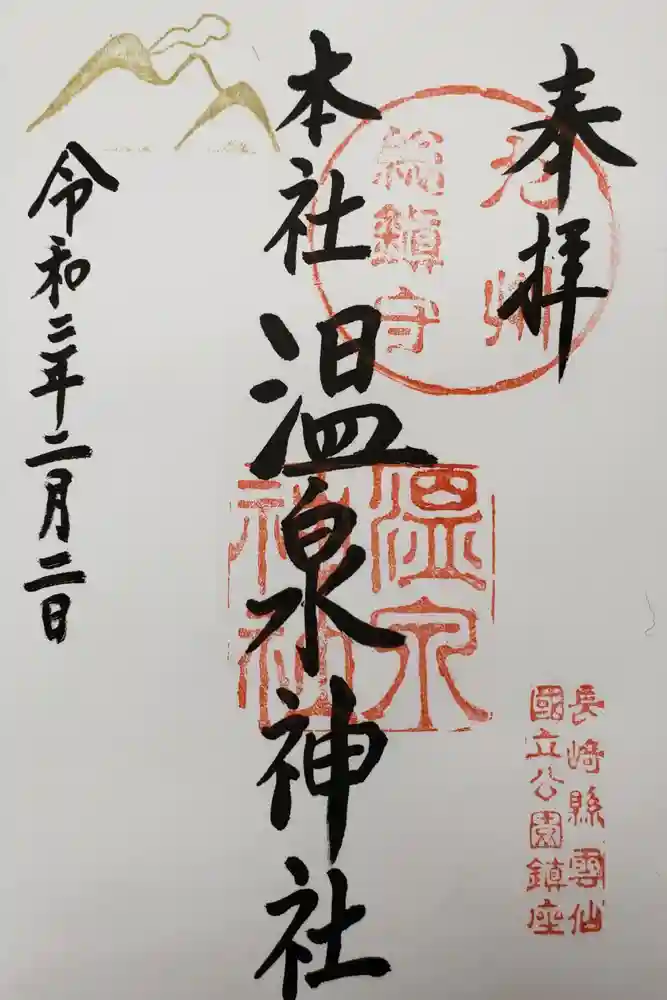 奉拝
九州
總鎮守
本社温泉神社
温泉
神社
長崎縣雲仙
國立公園鎮座
令和三年二月二日